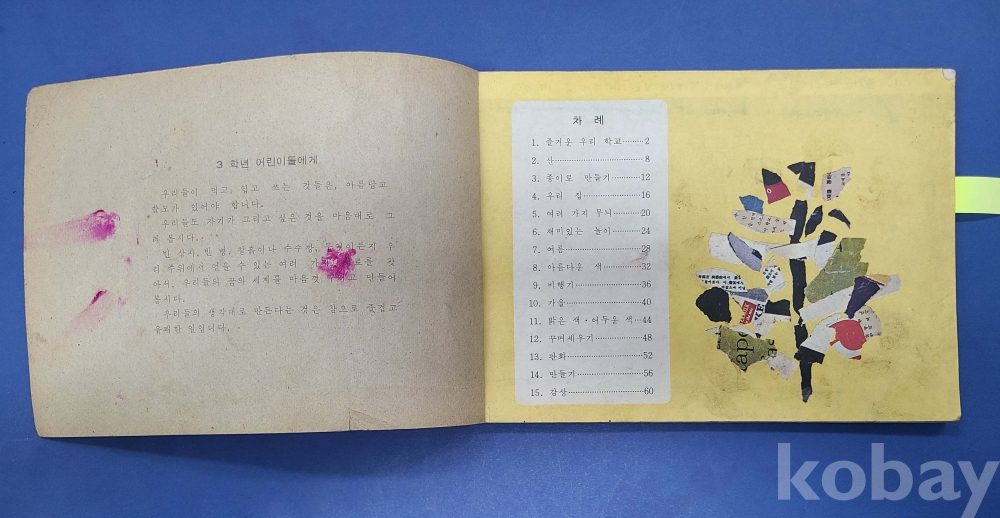 3 학년 어린이들에게
우리들이 먹고, 입고 쓰는 것들은, 아름답고
쓸모가 있어야 합니다.
우리들도 자기가 그리고 싶은 것을 마음대로 그
려 봅시다.
빈 상자, 빈 병, 찰흙이나 수수깡, 우
리 주위에서 얻을 수 있는 여러 찾
아서, 우리들의 꿈의 세계를 마음껏 만들어
봅시다.
우리들의 생각대로 만든다는 것은 참으로 즐겁고
유쾌한 일입니다.
차 례
1. 즐거운 우리 학교………2
2. 산………8
3. 종이로 만들기………12
4. 우리 집………16
5. 여러 가지 무늬………20
6. 재미있는 놀이………24
7. 여름………28
8. 아름다운 색………32
9. 비행기………36
10. 가을………40
11. 밝은 색·어두운 색…44
12. 꾸며세우기………48
13. 판화………52
14. 만들기………56
15. 감상………60
ape
KE
kobay